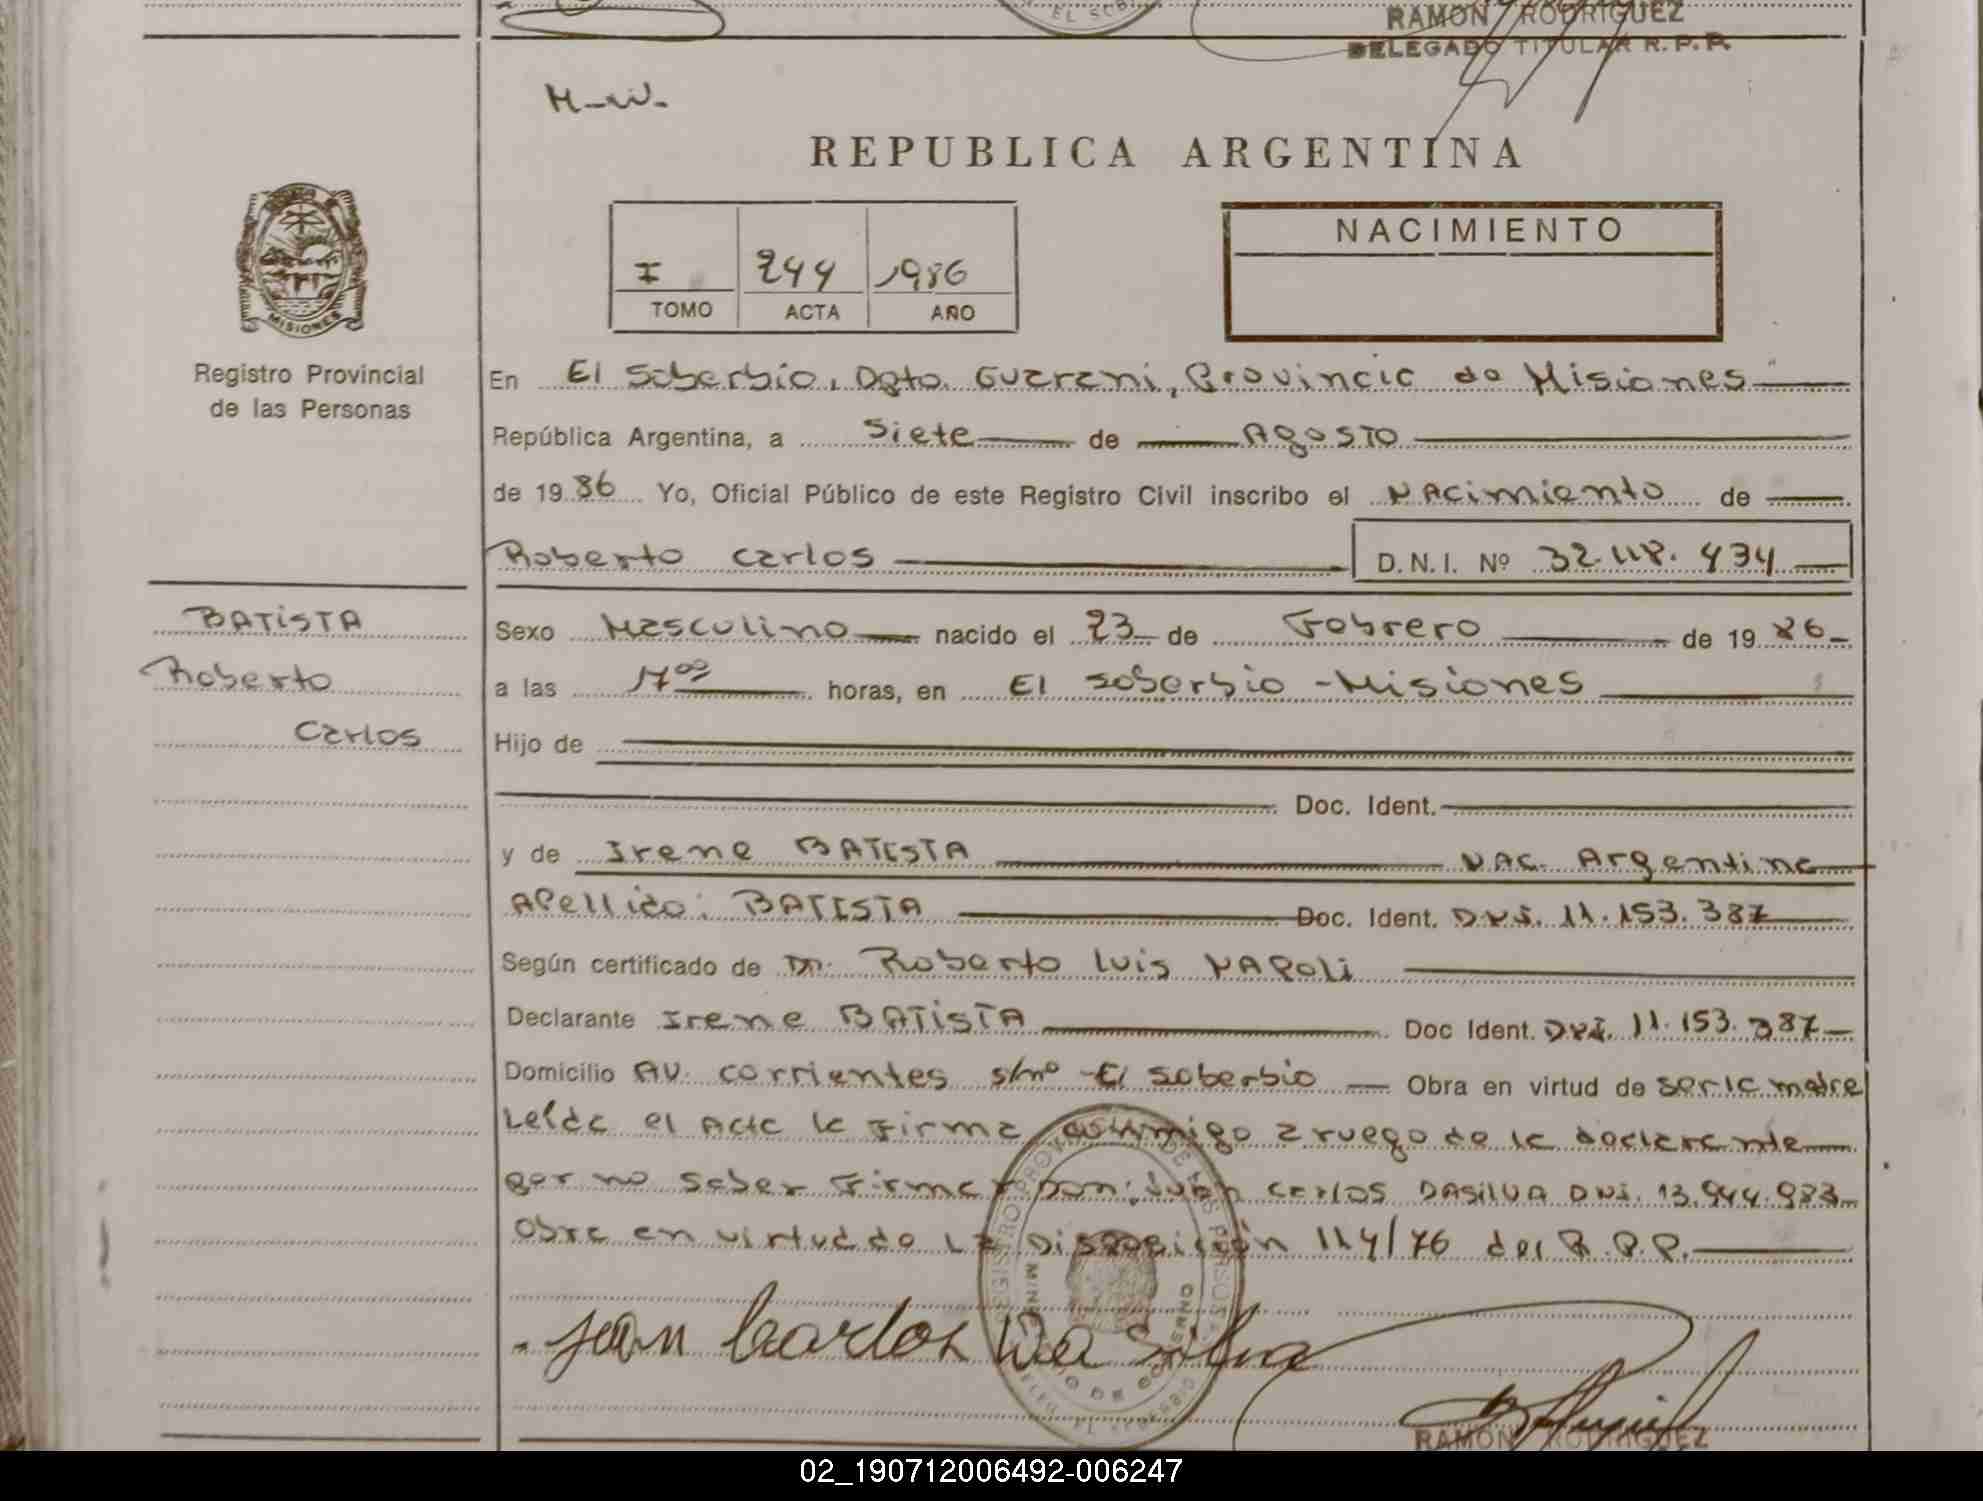 EL SOB
RAMON RODRIGUEZ
DELEGADO TITULAR R.P.P.
REPUBLICA ARGENTINA
NACIMIENTO
I 244 1986
TOMO ACTA AÑO
MISIONES
Registro Provincial
de las Personas
En El Soberbio, Dpto. Guarani, Provincia de Misiones
República Argentina, a Siete de Agosto
de 19 86 Yo, Oficial Público de este Registro Civil inscribo el Nacimiento de
Roberto Carlos D.N.I. Nº 32.118.434
BATISTA
Roberto
Carlos
Sexo Masculino nacido el 23 de Febrero de 19 86
a las 17⁰⁰ horas, en El Soberbio - Misiones
Hijo de
Doc. Ident.
y de Irene BATISTA NAC. Argentina
Apellido: BATISTA Doc. Ident. DNI. 11.153.387
Según certificado de Dr. Roberto Luis NAPOLI
Declarante Irene BATISTA Doc Ident. DNI. 11.153.387
Domicilio AV. Corrientes s/nº - El Soberbio Obra en virtud de ser la madre
Leída el Acta la Firma conmigo a ruego de la declarante
por no saber Firmar Don: Juan Carlos DASILVA DNI. 13.944.983
Obra en virtud de la Disposición 114/76 del R.P.P.
Juan Carlos Da Silva
RAMON RODRIGUEZ
02_190712006492-006247